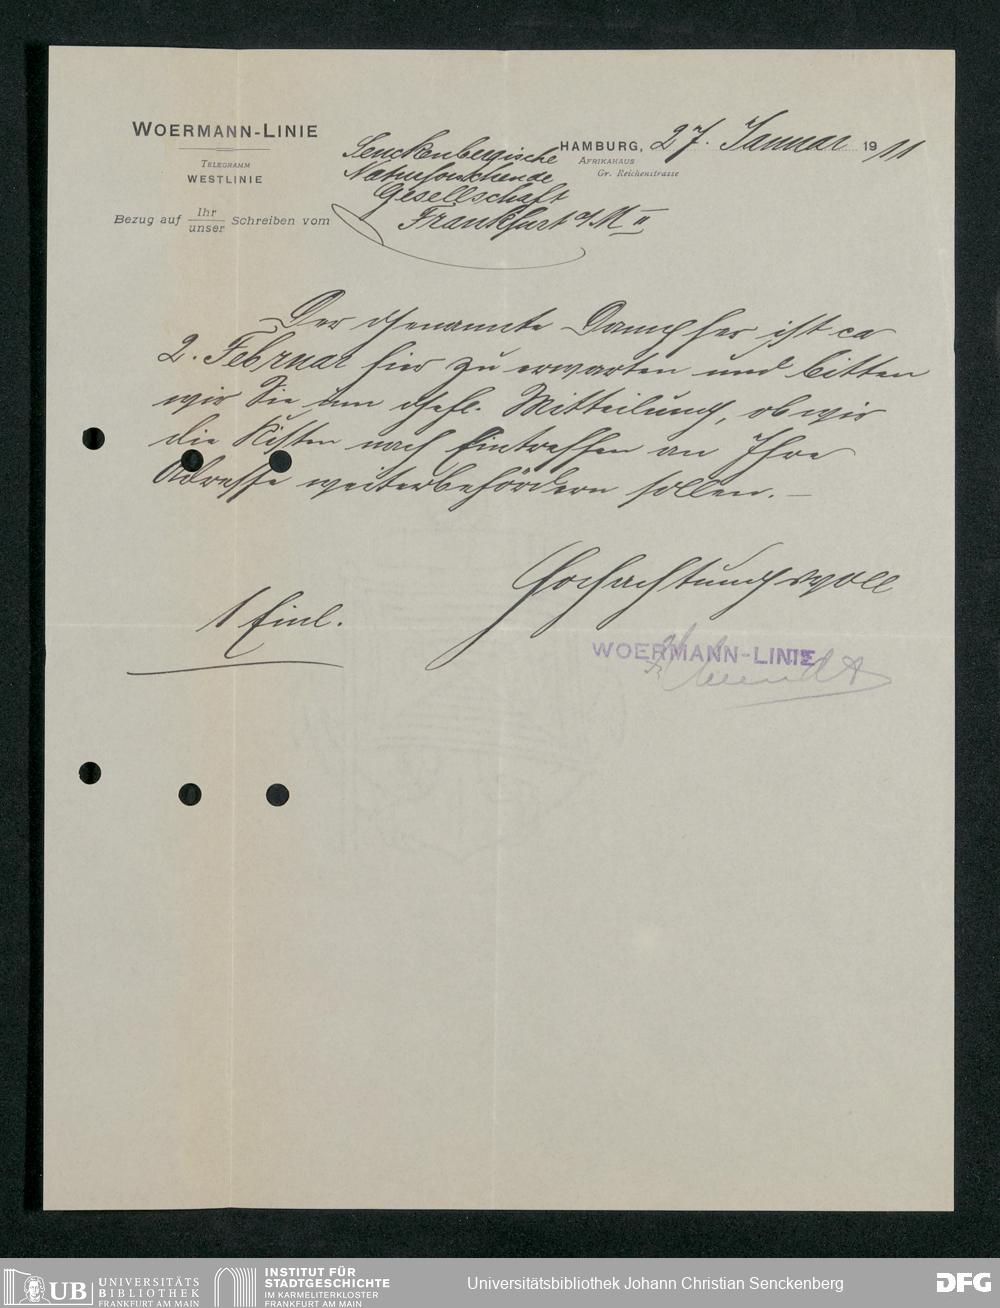 WOERMANN-LINIE
TELEGRAMM
WESTLINIE
Bezug auf Ihr/unser Schreiben vom
HAMBURG, 27. Januar 1911
AFRIKAHAUS
Gr. Reichenstrasse
Senckenbergische
Naturforschende
Gesellschaft
Frankfurt a/M
Der genannte Dampfer ist ca
2. Februar hier zu erwarten und bitten
wir Sie um gefl. Mitteilung, ob wir
die Kisten nach Eintreffen an Ihre
Adresse weiterbefördern sollen. –
Hochachtungsvoll
1 Einl.
WOERMANN-LINIE
UB UNIVERSITÄTS
BIBLIOTHEK
FRANKFURT AM MAIN
INSTITUT FÜR
STADTGESCHICHTE
IM KARMELITERKLOSTER
FRANKFURT AM MAIN
Universitätsbibliothek Johann Christian Senckenberg
DFG